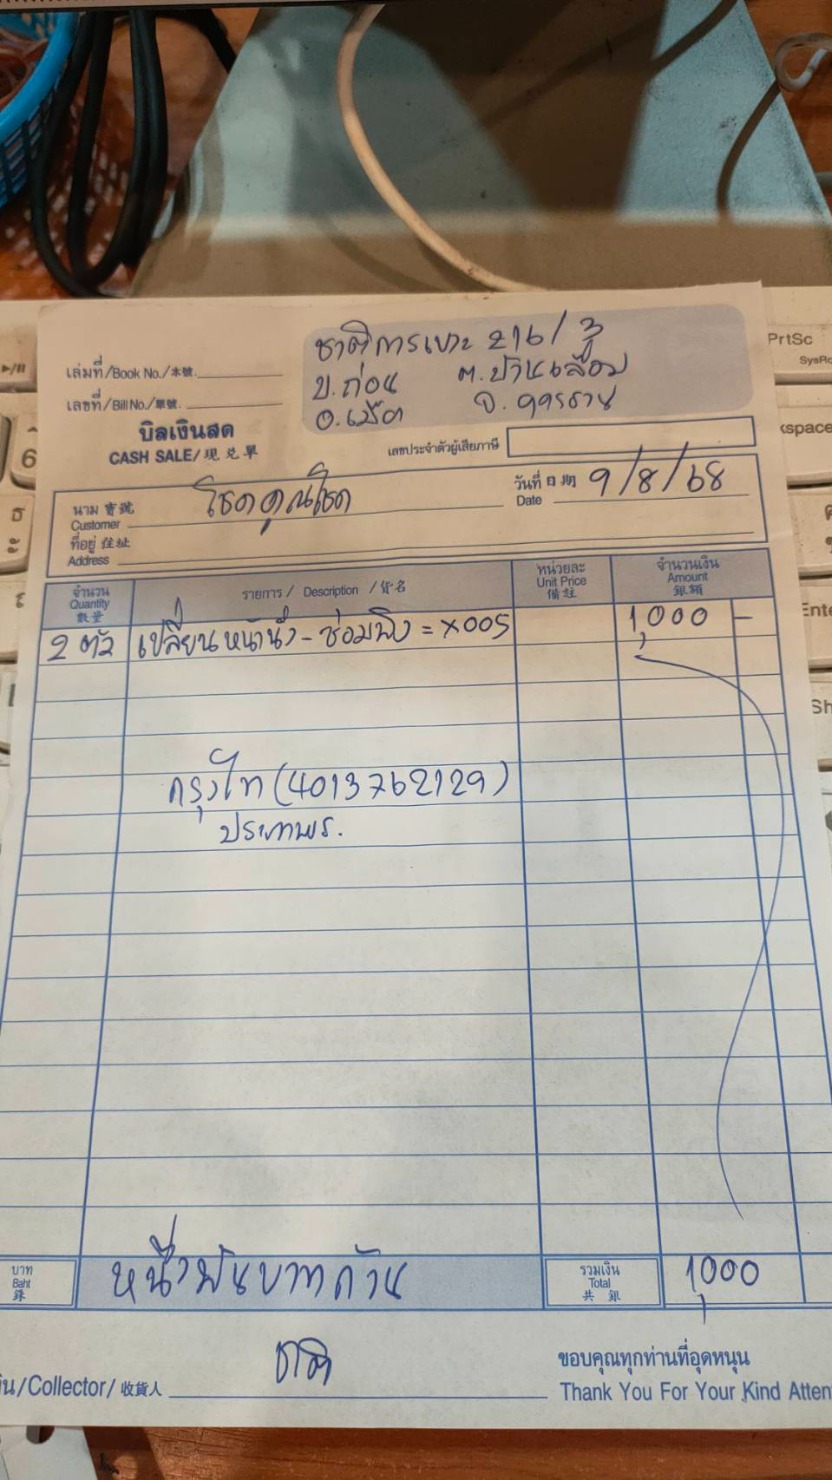 ชาติการเบาะ 216/3
เล่มที่/Book No./本號.
บ.ถ่อน ต.บ้านเลื่อม
เลขที่/Bill No./單號.
อ.เมือง จ.อุดรธานี
บิลเงินสด
CASH SALE/現兌單
เลขประจำตัวผู้เสียภาษี
นาม 寶號 Customer โชคคูณโชค วันที่ 日期 Date 9/8/68
ที่อยู่ 住址 Address
จำนวน Quantity 數量 รายการ / Description / 貨名 หน่วยละ Unit Price 備註 จำนวนเงิน Amount 銀額
2 ตัว เปลี่ยนหนานั่ง - ซ่อมพิง = X005 1,000 -
กรุงไท (4013762129)
ประพาพร.
บาท Baht 銖 หนึ่งพันบาทถ้วน รวมเงิน Total 共銀 1,000
ชาติ
ขอบคุณทุกท่านที่อุดหนุน
/Collector/ 收貨人 Thank You For Your Kind Atten
PrtSc
SysR
kspace
Ente
Sh
6